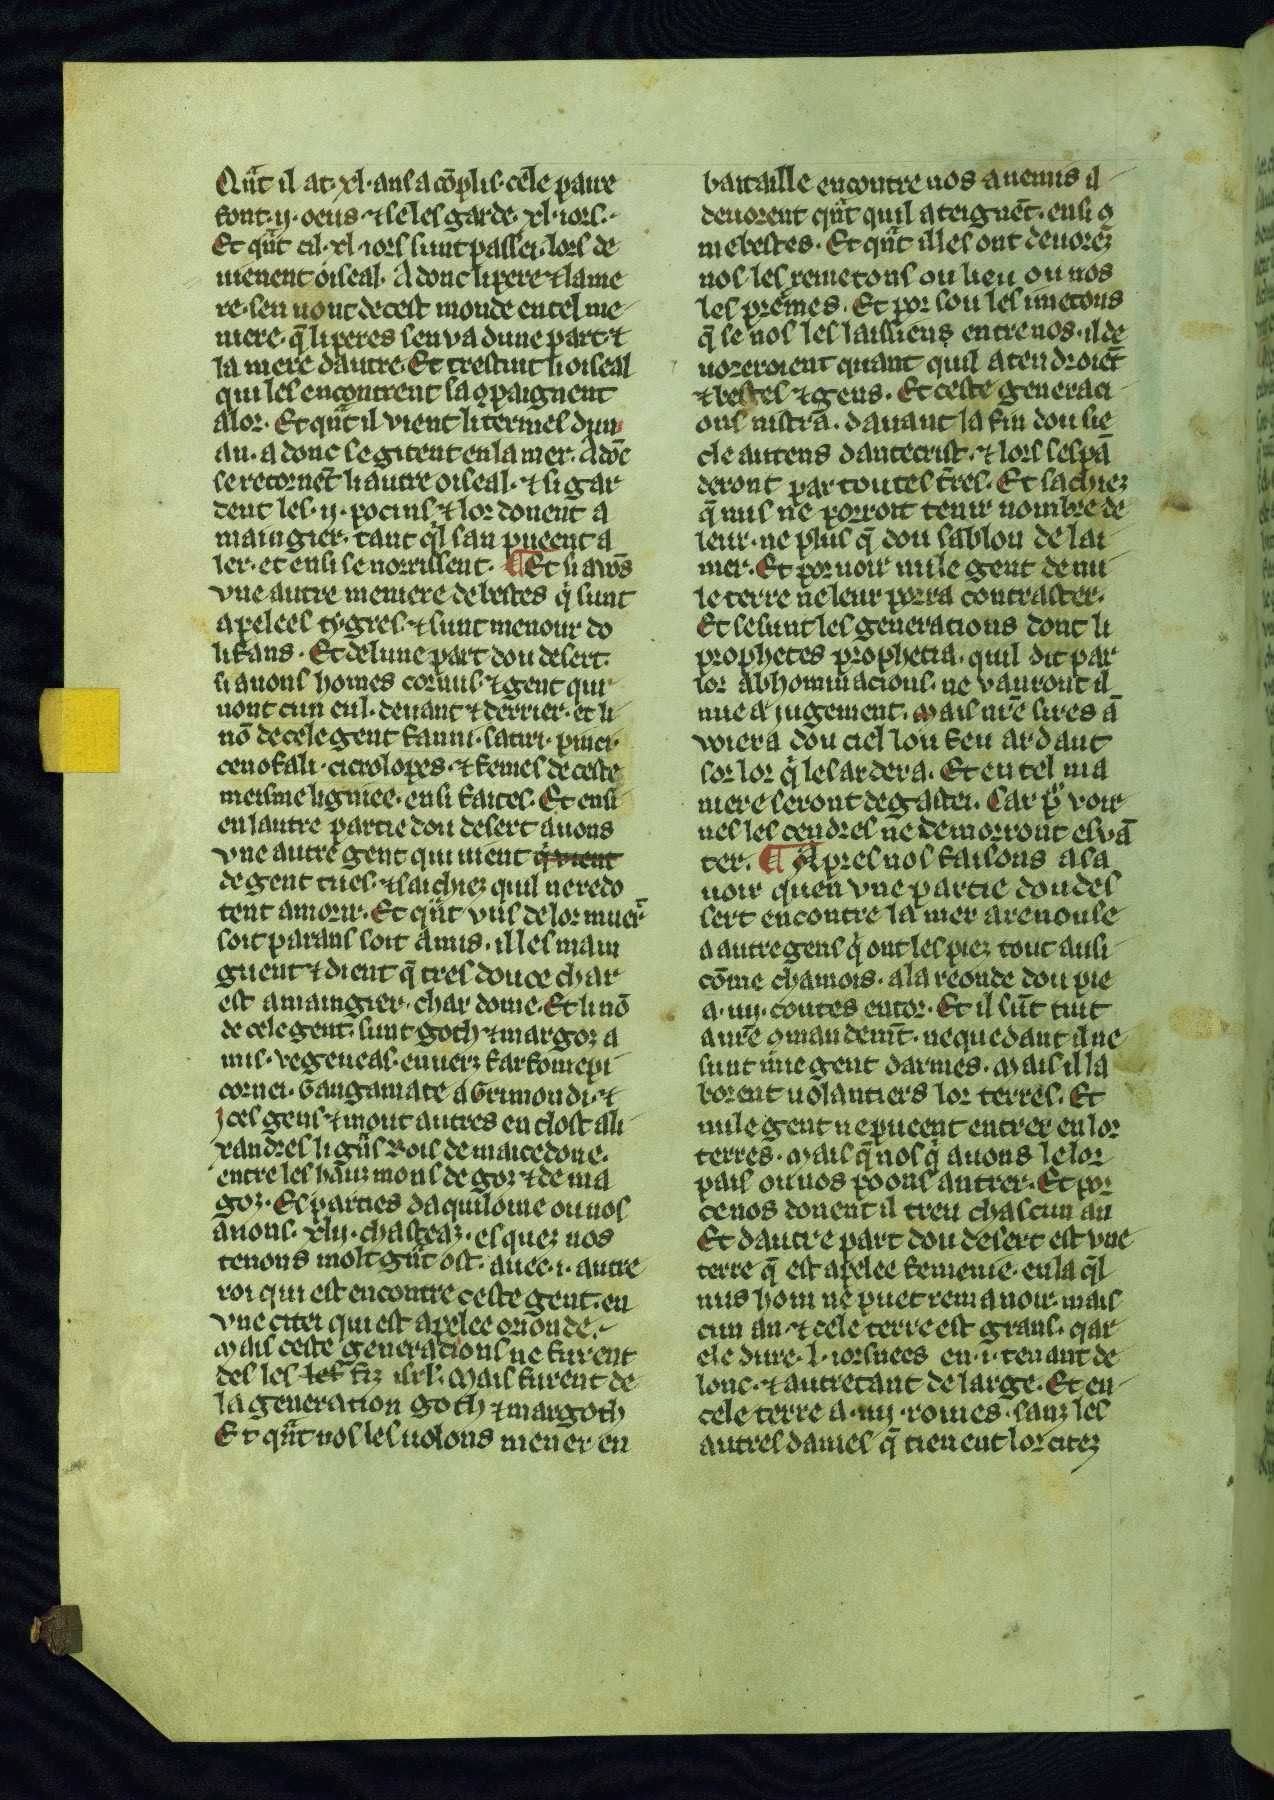 Qūt il at .xl. ans a cōplis. cele paire
font .ij. oeus. ⁊ se les garde .xl. iors.
Et qūt cil .xl. iors sunt passei. lors de
uienent oiseal. Adonc li pere ⁊ la me
re. sen uont de cest monde en tel me
niere. q̄ li peres sen va dune part. ⁊
la mere dautre. Et trestuit li oiseal
qui les encontrent sa ꝯpaignent
a lor. Et qūt il vient li termes dun
an. a donc se gitent en la mer. Adōc
se retornēt li autre oiseal. ⁊ si gar
dent les .ij. pocins. ⁊ lor donent a
maingier. tant q̄l san pueent a
ler. et ensi se norrissent. ¶ Et si avōs
vne autre meniere de bestes q̄ sunt
apelees tygres. ⁊ sunt menour do
lifans. Et de lune part dou desert.
si auons homes cornus. ⁊ gent qui
nont cun eul. deuant ⁊ derrier. et li
nō de cele gent fauni. satiri. pinci
cenofali. cicrolopes. ⁊ femes de ceste
meisme ligniee. ensi faites. Et ensi
en lautre partie dou desert auons
vne autre gent qui uient q̄ vient
de gent cues. ⁊ saichiez quil ne redo
tent a morir. Et qūt vns de lor muer̄t
soit parans soit amis. il les main
guent ⁊ dient q̄ tres douce char
est a maingier. char dome. Et li nō
de cele gent. sunt goth ⁊ margoz a
nis. vegeneas. enuerz farfomepi
cornei. Gangamate agrimondi. ⁊
Jces gens ⁊ mont autres enclost ali
xandres li gūs Rois de maicedone.
entre les hāuz mons de goz ⁊ de ma
goz. Es parties daquilone ou nos
auons. xlij. chasteaz. es quez nos
tenons molt gūt ost. auec .i. autre
roi qui est encontre ceste gent. en
vne citei qui est apelee orionde.
Mais ceste generations ne furent
des les les fiz isrl. Mais furent de
la generation goth ⁊ margoth
Et qūt nos les uolons mener en
bataille encontre nos anemis il
deuorent qūt quil ateignēt. ensi ꝯ
me bestes. Et qūt il les ont deuorez
nos les remetons ou lieu ou nos
les preimes. Et por sou les i metons
q̄ se nos les laissiens entre nos. il de
uoreroient quant quil atendroiēt
⁊ bestes ⁊ gens. Et ceste generaci
ons nistra. dauant la fin dou sie
cle au tens dantecrist. ⁊ lors sespā
deront par toutes t̄res. Et sachiez
q̄ nus ne porroit tenir nombre de
leur. ne plus q̄ dou sablon de lai
mer. Et por uoir nule gent de nu
le terre ne leur porra contraster.
Et se sunt les generations dont li
prophetes prophetia. quil dit par
lor abhominacions. ne vauront il
nue a jugement. Mais nr̄e sires ā
voiera dou ciel lou feu ardant
sor lor q̄ les ardera. Et en tel ma
niere seront degastei. Car p̄ voir
nes les cendres ne demorront es vā
ter. ¶ Apres nos faisons a sa
uoir quen vne partie dou des
sert encontre la mer arenouse
a autre gens q̄ ont les piez tout ausi
cōme chamois. a la reonde dou pie
a .iiij. coutes entor. Et il sūt tuit
a nr̄e ꝯmandemēt. nequedant il ne
sunt mie gent darmes. Mais il la
borent uolantiers lor terres. Et
nule gent ne pueent entrer en lor
terres. Mais q̄ nos q̄ auons le lor
pais ou nos poons antrer. Et por
ce nos donent il treu chascun an
Et dautre part dou desert est vne
terre q̄ est apelee femenie. en la q̄l
nus hom ne puet remanoir. mais
cun an. ⁊ cele terre est grans. qar
ele dure .l. iornees en .i. tenant de
lonc. ⁊ autretant de large. Et en
cele terre a .iiij. roines. sanz les
autres dames q̄ tienent lor citez